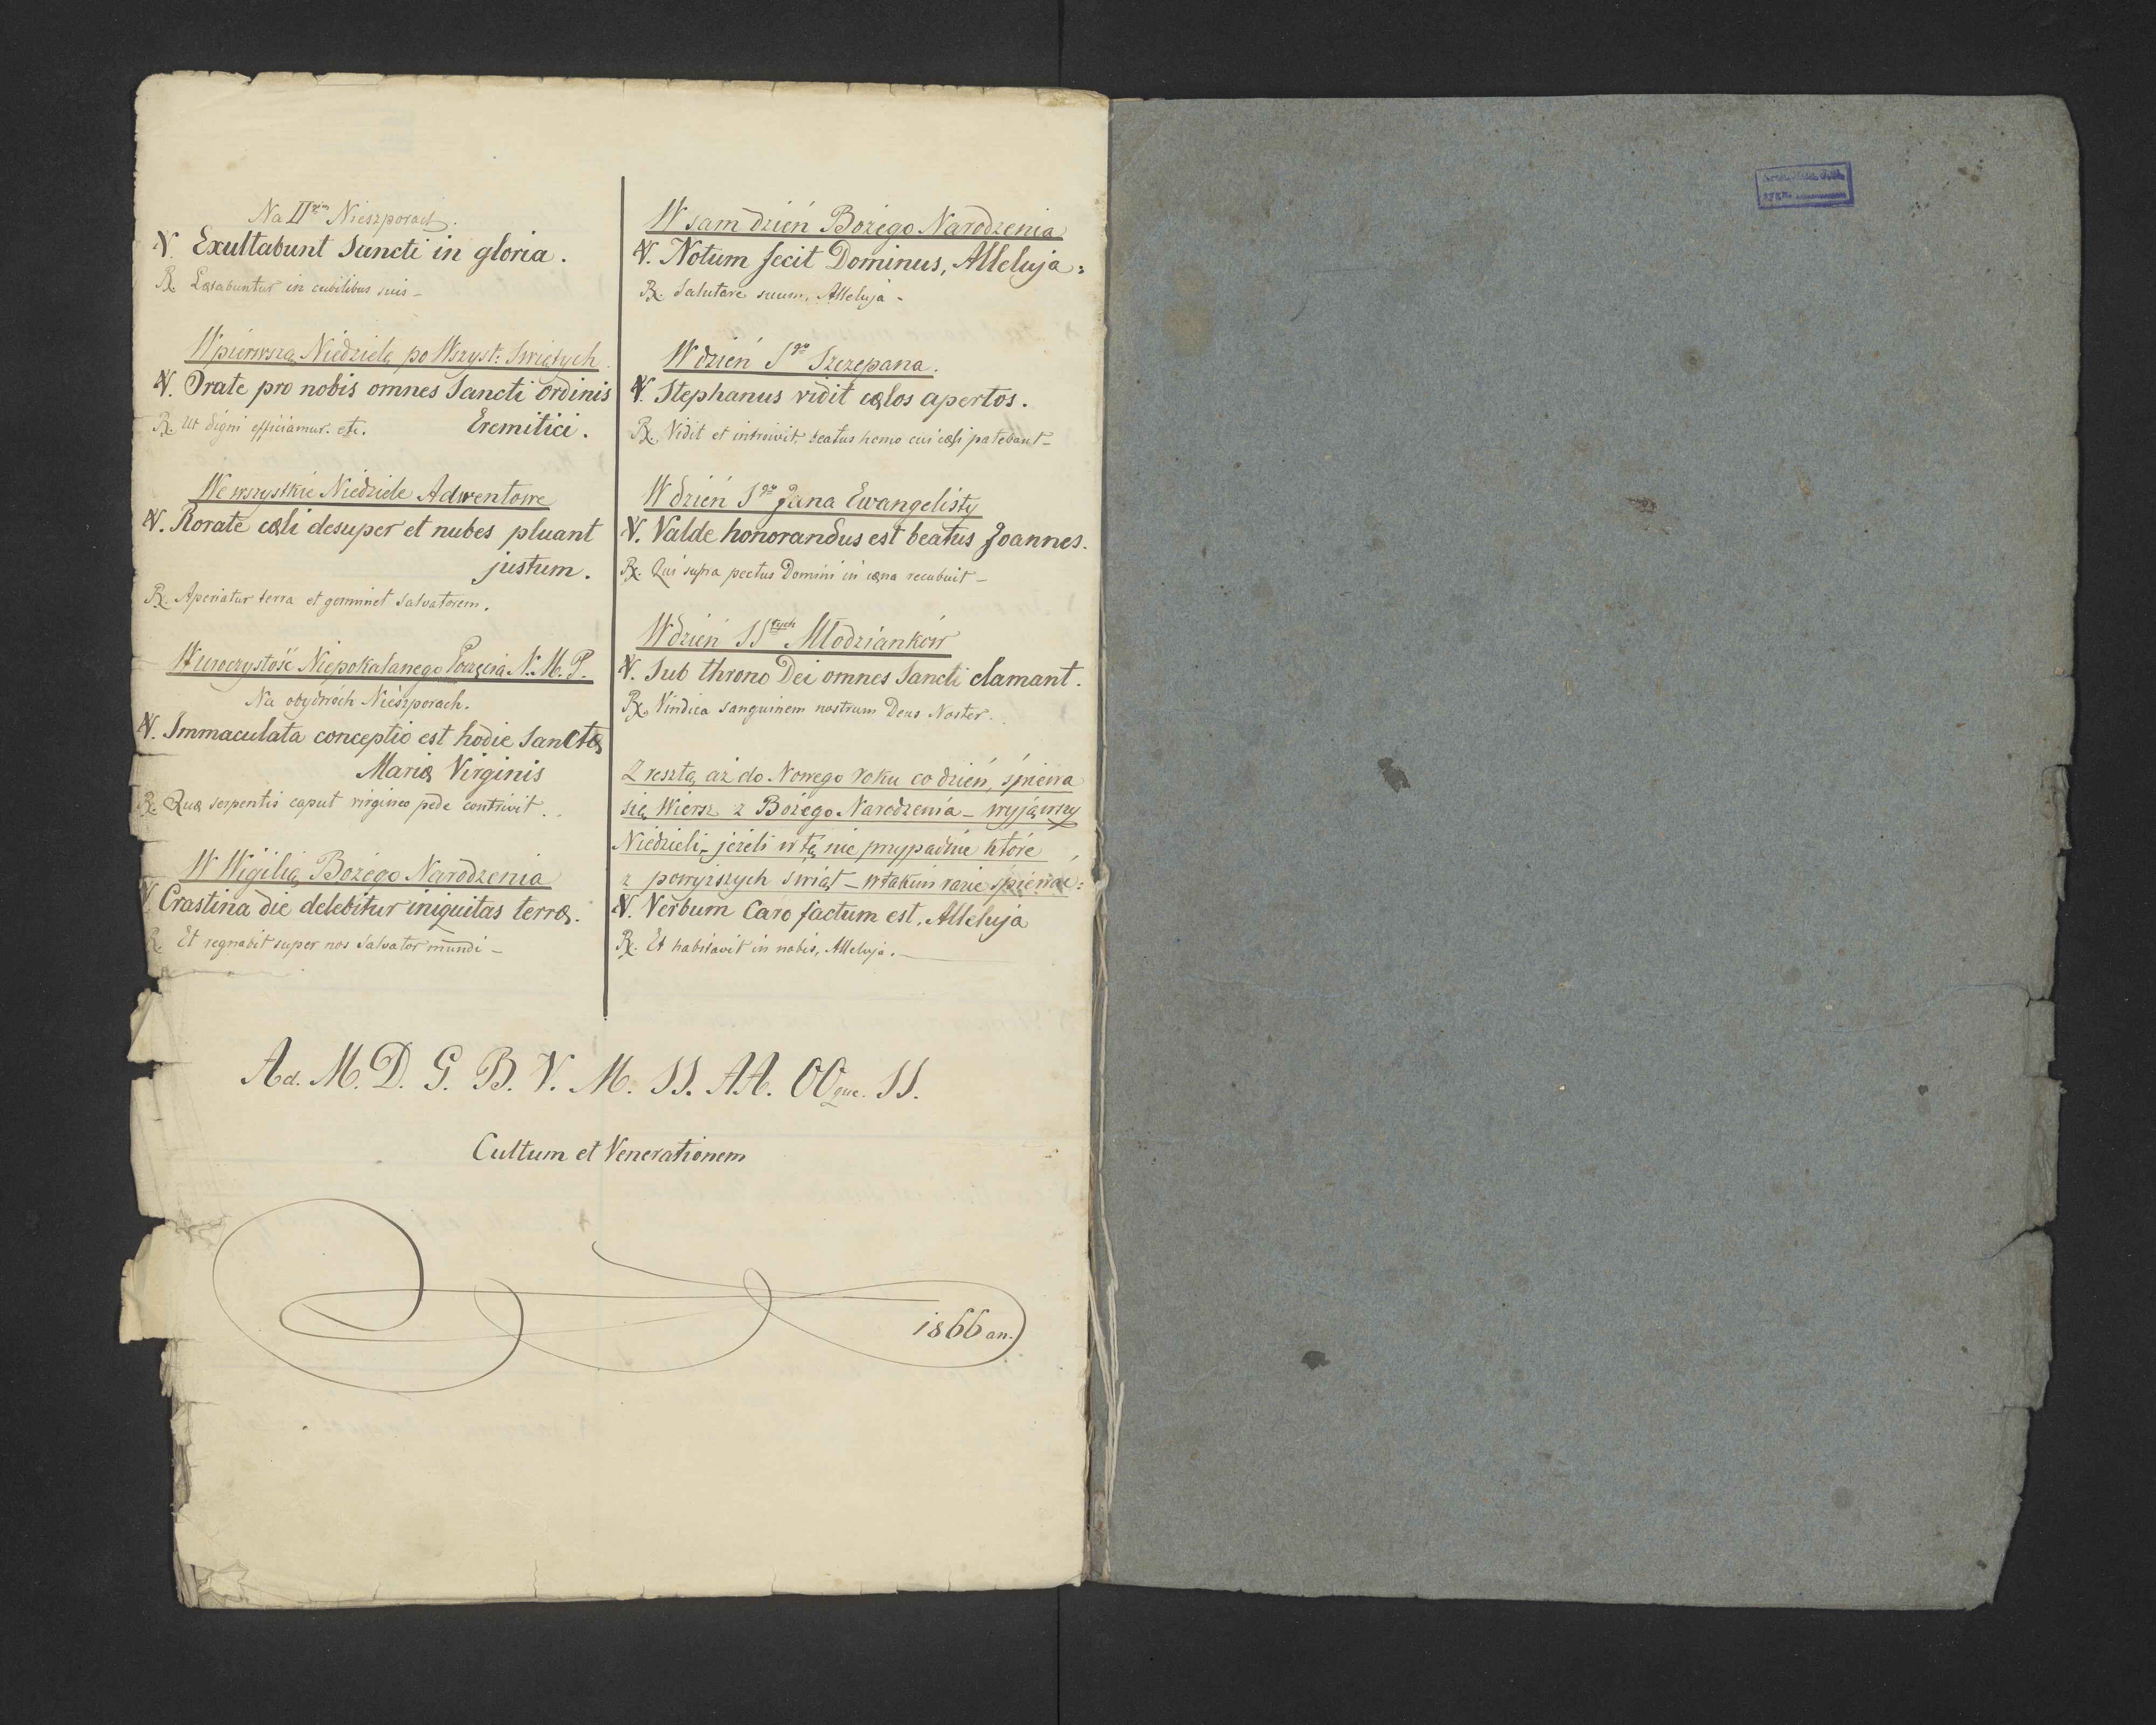 Na II^gim Nieszporach.
℣. Exultabunt Sancti in gloria.
℟. Lætabuntur in cubilibus suis –
W pierwszą Niedzielę po Wszyst: Świętych.
℣. Orate pro nobis omnes Sancti Ordinis
Eremitici.
℟. Ut digni efficiamur. etc.
We wszystkie Niedziele Adwentowe
℣. Rorate cæli desuper et nubes pluant
justum.
℟. Aperiatur terra et germinet Salvatorem.
W uroczystość Niepokalanego Poczęcia N. M. P.
Na obydwóch Nieszporach.
℣. Immaculata conceptio est hodie Sanctæ
Mariæ Virginis
℟. Quæ serpentis caput virgineo pede contrivit.
W Wigilią Bożego Narodzenia
℣. Crastina die delebitur iniquitas terræ.
℟. Et regnabit super nos Salvator mundi –
W sam dzień Bożego Narodzenia
℣. Notum fecit Dominus, Alleluja:
℟. Salutare suum, Alleluja –
W dzień S^go Szczepana.
℣. Stephanus vidit cælos apertos.
℟. Vidit et introivit, beatus homo cui cæli patebant –
W dzień S^go Jana Ewangelisty
℣. Valde honorandus est beatus Joannes.
℟. Qui supra pectus Domini in cæna recubuit –
W dzień SS^tych Młodzianków
℣. Sub throno Dei omnes Sancti clamant.
℟. Vindica sanguinem nostrum Deus Noster.
Z resztą aż do Nowego roku co dzień, śpiewa
się Wiersz z Bożego Narodzenia – wyjąwszy
Niedzieli, – jeżeli w tę nie przypadnie które
z powyższych świąt – w takim razie śpiewać:
℣. Verbum Caro factum est, Alleluja
℟. Et habitavit in nobis, Alleluja. –
Ad. M. D. G. B. V. M. SS. AA. OOque. SS.
Cultum et Venerationem
1866 an.